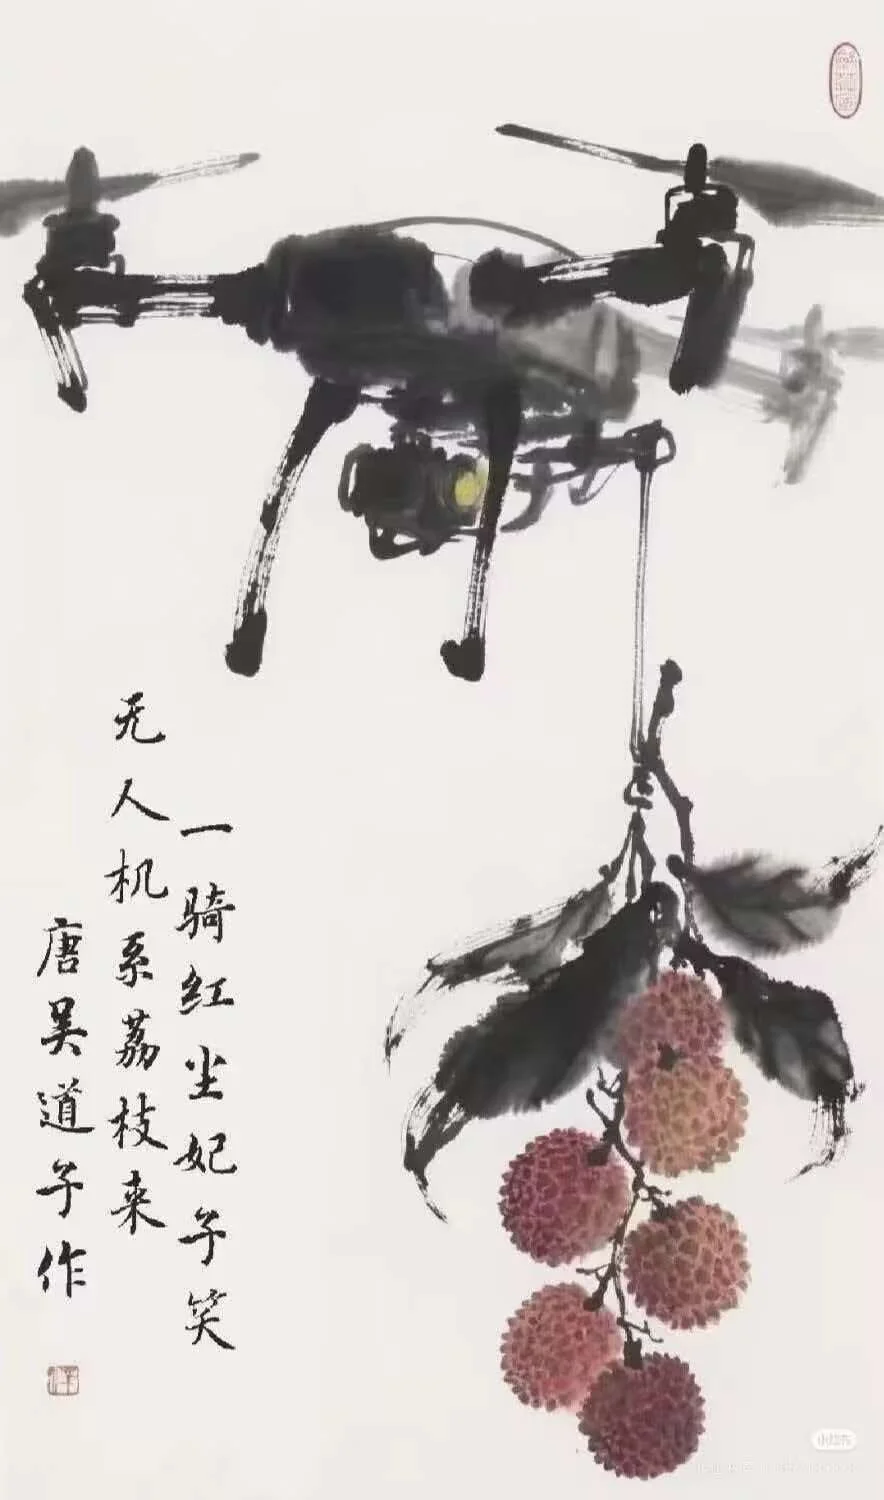 一骑红尘妃子笑
无人机系荔枝来
唐吴道子作
小红书